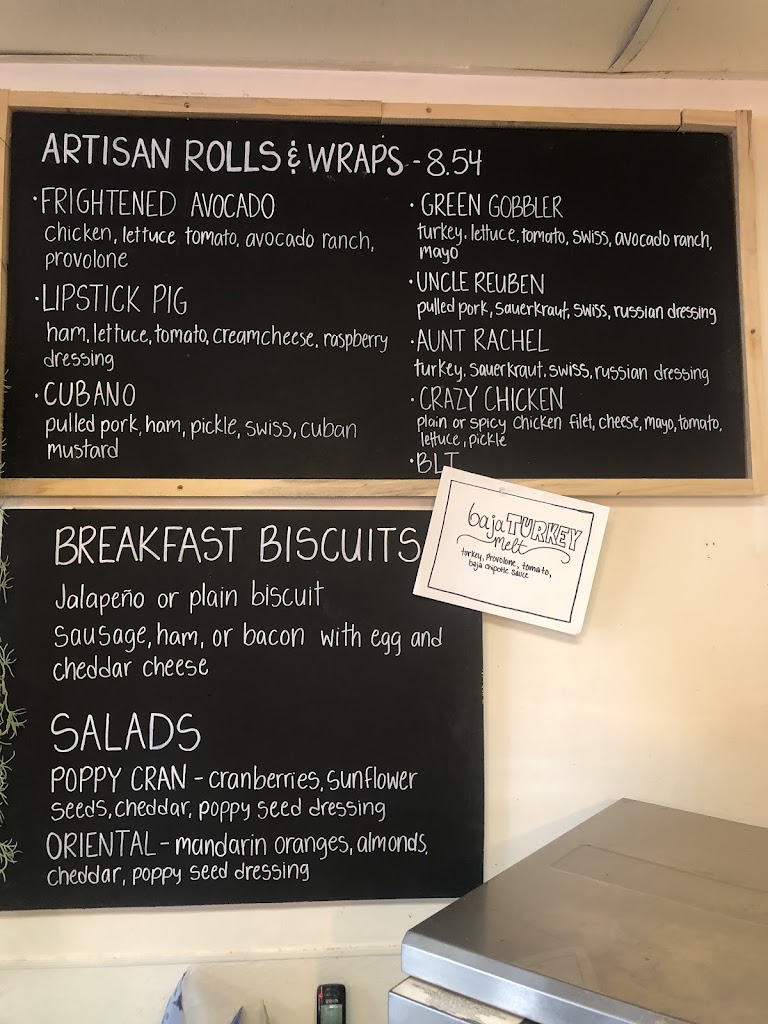 ARTISAN ROLLS & WRAPS - 8.54
• FRIGHTENED AVOCADO
chicken, lettuce tomato, avocado ranch,
provolone
• LIPSTICK PIG
ham, lettuce, tomato, creamcheese, raspberry
dressing
• CUBANO
pulled pork, ham, pickle, swiss, cuban
mustard
• GREEN GOBBLER
turkey, lettuce, tomato, swiss, avocado ranch,
mayo
• UNCLE REUBEN
pulled pork, sauerkraut, swiss, russian dressing
• AUNT RACHEL
turkey, sauerkraut, swiss, russian dressing
• CRAZY CHICKEN
plain or spicy chicken filet, cheese, mayo, tomato,
lettuce, pickle
• BLT
baja TURKEY
melt
turkey, provolone, tomato,
baja chipotle sauce
BREAKFAST BISCUITS
Jalapeño or plain biscuit
sausage, ham, or bacon with egg and
cheddar cheese
SALADS
POPPY CRAN - cranberries, sunflower
seeds, cheddar, poppy seed dressing
ORIENTAL - mandarin oranges, almonds,
cheddar, poppy seed dressing